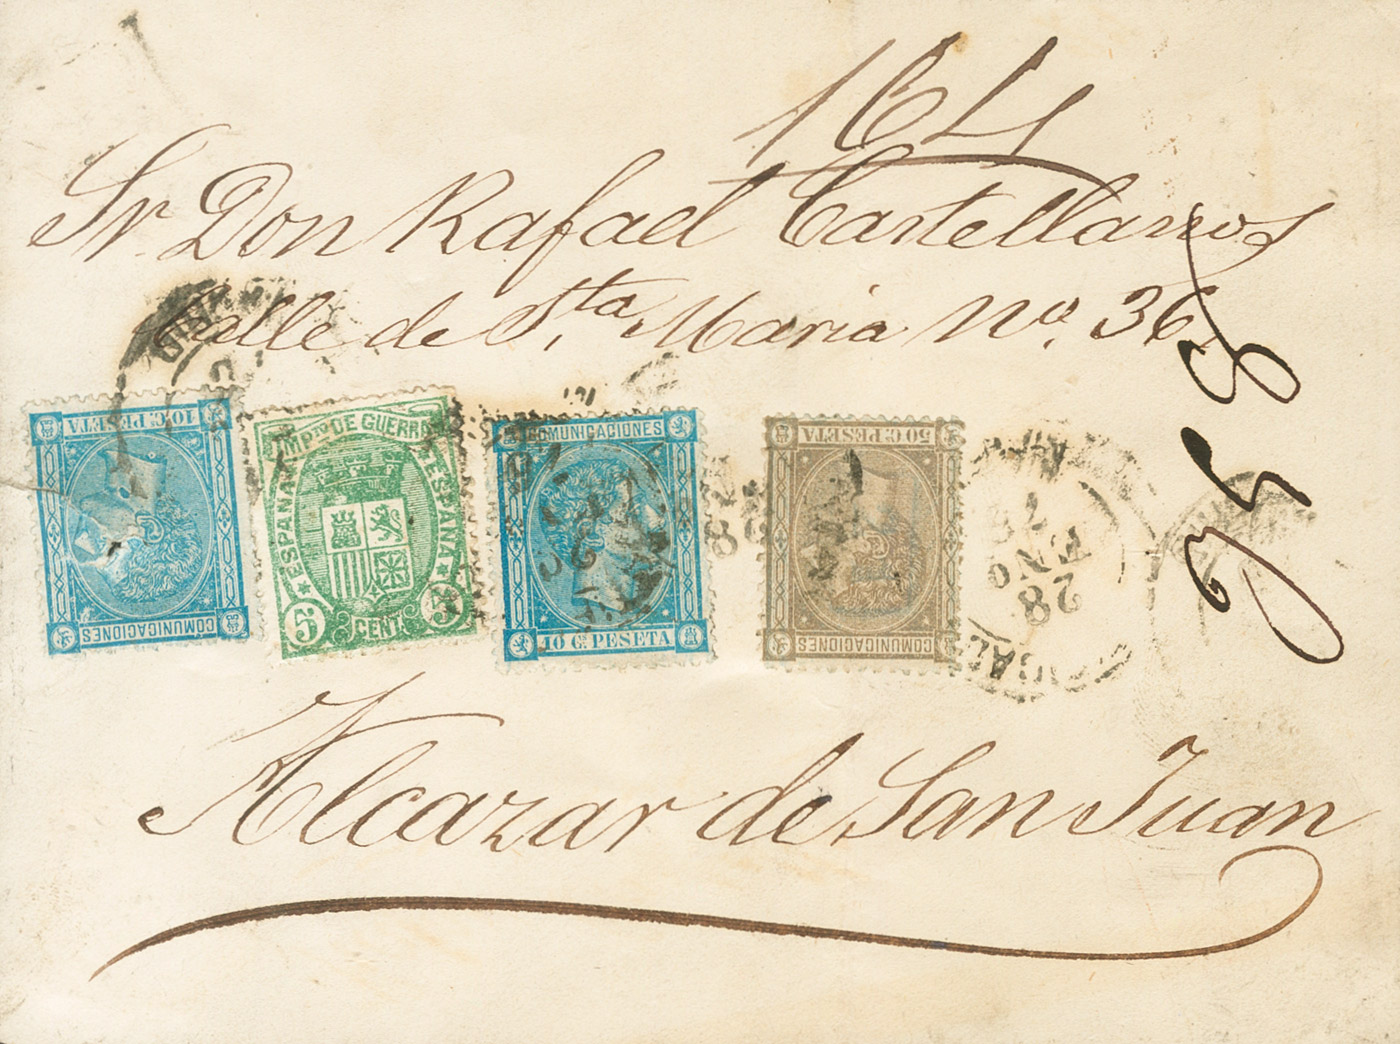 164
Sr. Don Rafael Castellanos
Calle de Sta. Maria No. 36
10 C. PESETA
COMUNICACIONES
IMPTO DE GUERRA
ESPAÑA
ESPAÑA
5 CENT 5
COMUNICACIONES
10 C. PESETA
50 C. PESETA
COMUNICACIONES
28
ENO
76
Alcazar de San Juan